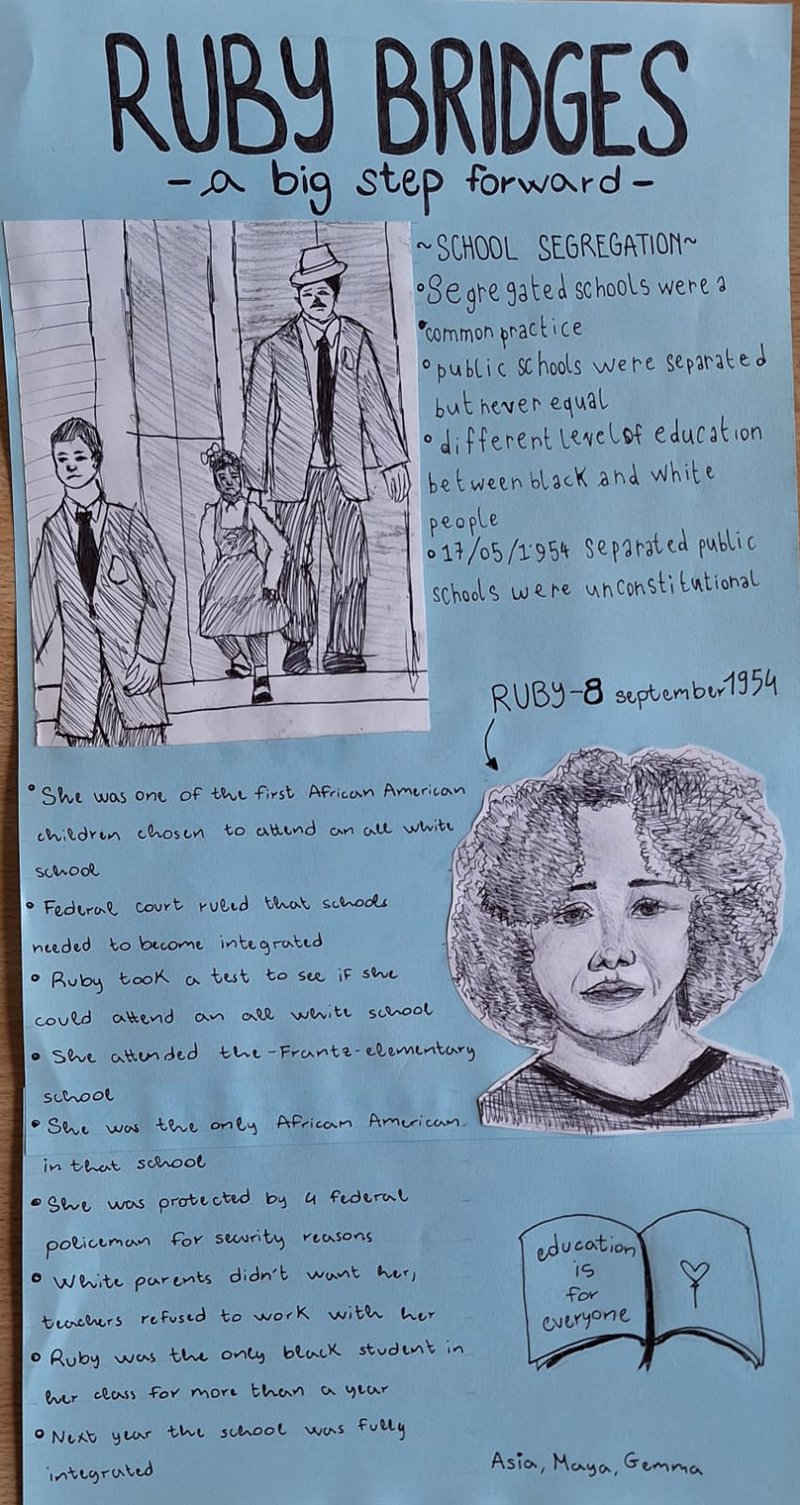 RUBY BRIDGES
- a big step forward -
~SCHOOL SEGREGATION~
• Segregated schools were a
• common practice
• public schools were separated
but never equal
• different level of education
between black and white
people
• 17/05/1954 separated public
schools were unconstitutional
RUBY - 8 september 1954
• She was one of the first African American
children chosen to attend an all white
school
• Federal court ruled that schools
needed to become integrated
• Ruby took a test to see if she
could attend an all white school
• She attended the - Frantz - elementary
school
• She was the only African American
in that school
• She was protected by 4 federal
policeman for security reasons
• White parents didn't want her,
teachers refused to work with her
• Ruby was the only black student in
her class for more than a year
• Next year the school was fully
integrated
education
is
for
everyone
Asia, Maya, Gemma